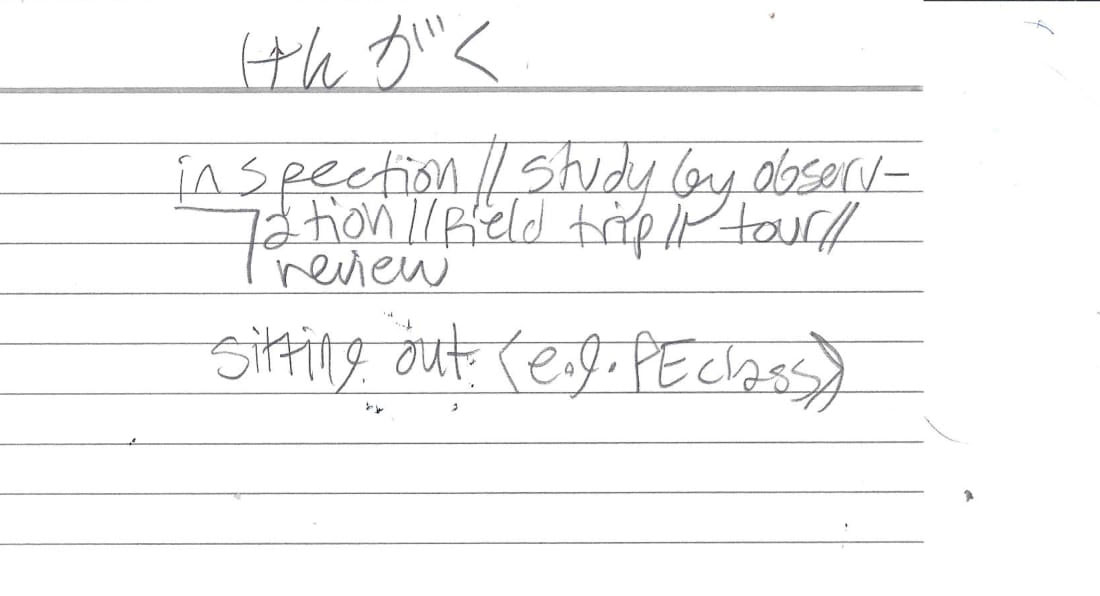 けんがく
inspection // study by observ-
ation // field trip // tour //
review
sitting out (e.g. PE class)